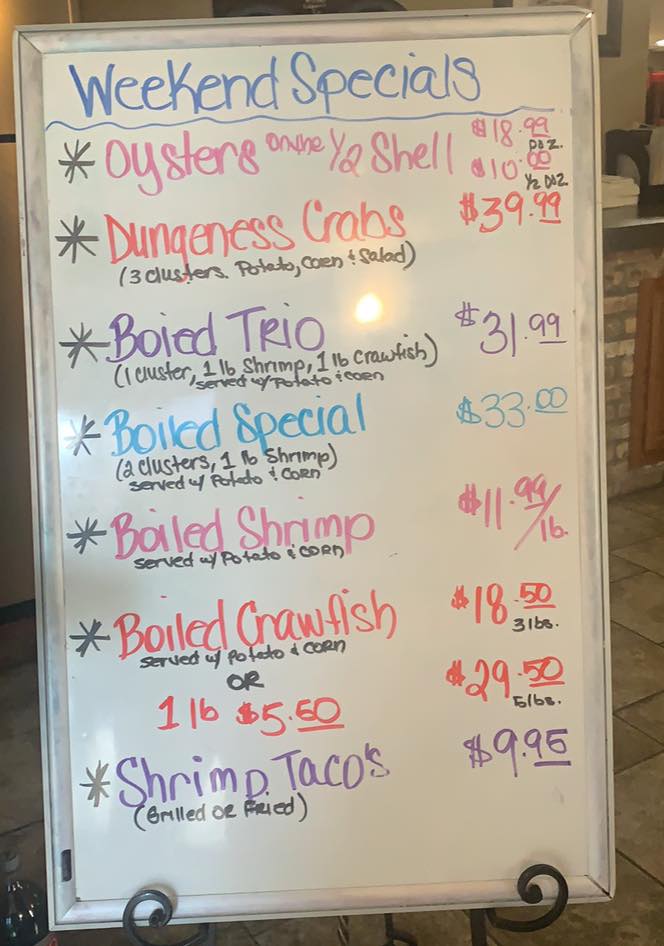 Weekend Specials
* Oysters on the 1/2 Shell $18.99 DOZ.
$10.00 1/2 DOZ
* Dungeness Crabs $39.99
(3 clusters. Potato, corn & Salad)
* Boied TRIO $31.99
(1 cluster, 1 lb Shrimp, 1 lb Crawfish)
served w/ Potato & corn
* Boiled Special $33.00
(2 clusters, 1 lb Shrimp)
served w/ Potato & CORN
* Boiled Shrimp $11.99/lb.
served w/ Potato & CORN
* Boiled Crawfish $18.50
served w/ Potato & CORN 3 lbs.
OR $29.50
1 lb $5.50 5 lbs.
* Shrimp Taco's $9.95
(Grilled OR Fried)